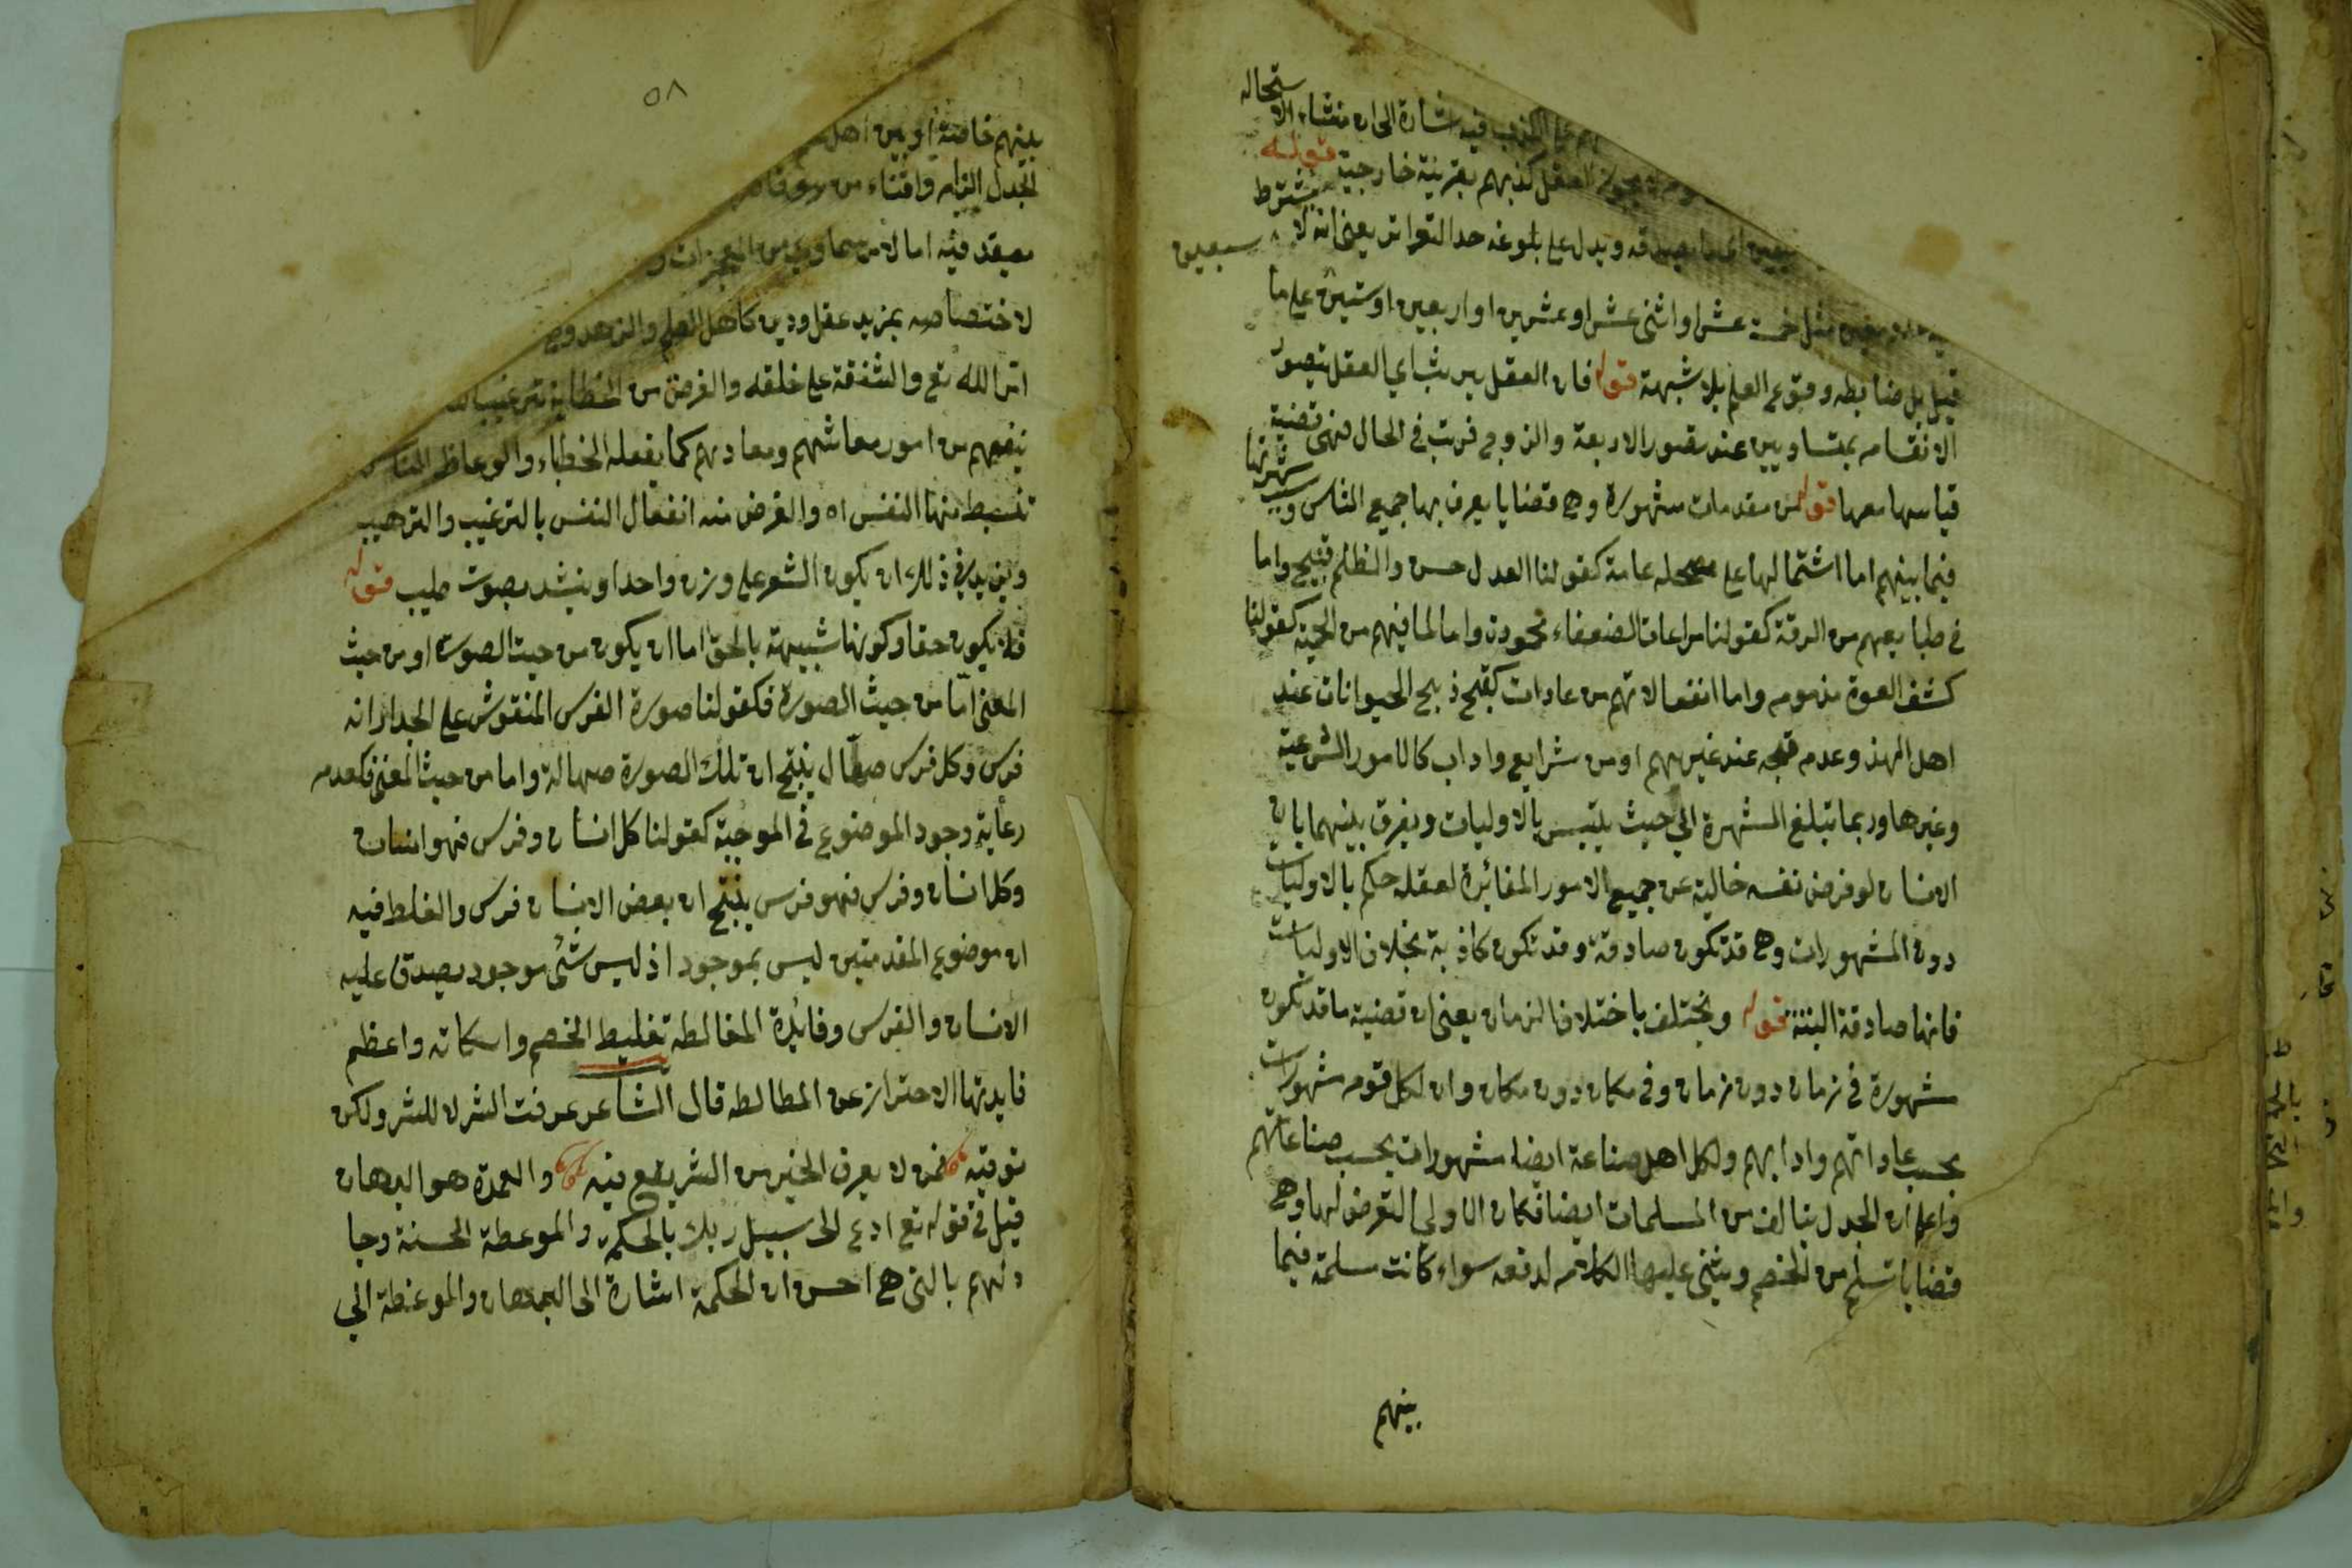 الكذب فيه اشارة الى ان منشاء الاستحالة
العقل كذبهم بقرينة خارجية قوله
ويدل على بلوغه حد التواتر يعني انه لا يشترط
مثل خمسة عشر او اثنى عشر او عشرين او اربعين او ستين على ما
سبعين
قيل بل ضابطه وقوع العلم بلا شبهة قوله فان العقل يرتب اي العقل بتصور
الانقسام بمتساويين عند تصور الاربعة والزوج فرتب في الحال فهي قضية
قياسها معها قوله من مقدمات مشهورة وهي قضايا يعرف بها جميع الناس وسبب شهرتها
فيما بينهم اما اشتمالها على مصلحة عامة كقولنا العدل حسن والظلم قبيح واما
في طبايعهم من الرقة كقولنا مراعات الضعفاء محمودة واما لما فيهم من الحمية كقولنا
كشف العورة مذموم واما انفعالاتهم من عادات كقبح ذبح الحيوانات عند
اهل الهند وعدم قبحه عند غيرهم او من شرايع واداب كالامور الشرعية
وغيرها وربما تبلغ الشهرة الى حيث يلتبس بالاوليات ويفرق بينهما بان
الانسان لو فرض نفسه خالية عن جميع الامور المغائرة لعقله حكم بالاوليات
دون المشهورات وهي قد تكون صادقة وقد تكون كاذبة بخلاف الاوليات
فانها صادقة البتة قوله ويختلف باختلاف الزمان يعني ان قضية ما قد تكون
مشهورة في زمان دون زمان وفي مكان دون مكان وان لكل قوم مشهورات
بحسب عاداتهم وادابهم ولكل اهل صناعة ايضا مشهورات بحسب صناعاتهم
واعلم ان الجدل يتالف من المسلمات ايضا فكان الاولى التعرض لها وهي
قضايا تسلم من الخصم ويبنى عليها الكلام لدفعه سواء كانت مسلمة فيما
بينهم
٥٨
بينهم خاصة او بين اهل
الجدل الزام واقناء من
معتقد فيه اما لامر سماوي من المعجزات و
لاختصاصه بمزيد عقل ودين كاهل العلم والزهد و
امر الله تع والشفقة على خلقه والغرض من الخطابة ترغيب
ينفعهم من امور معاشهم ومعادهم كما يفعله الخطباء والوعاظ
تنبسط منها النفس اه والغرض منه انفعال النفس بالترغيب والترهيب
ويزيد في ذلك ان يكون الشعر على وزن واحد او ينشد بصوت طيب قوله
فلا يكون حقا وكونها شبيهة بالحق اما ان يكون من حيث الصورة او من حيث
المعنى اما من حيث الصورة فكقولنا صورة الفرس المنقوش على الجدار انه
فرس وكل فرس صهال ينتج ان تلك الصورة صهالة واما من حيث المعنى فكعدم
رعاية وجود الموضوع في الموجبة كقولنا كل انسان وفرس فهو انسان
وكل انسان وفرس فهو فرس ينتج ان بعض الانسان فرس والغلط فيه
ان موضوع المقدمتين ليس بموجود اذ ليس شئ موجود يصدق عليه
الانسان والفرس وفائدة المغالطه تغليط الخصم واسكاته واعظم
فايدتها الاحتراز عن المطالطه قال الشاعر عرفت الشر لا للشر ولكن
توقيه فمن لا يعرف الخير من الشر يقع فيه والعمدة هو البرهان
قيل في قوله تع ادع الى سبيل ربك بالحكمه والموعظة الحسنة وجا
دلهم بالتي هي احسن ان الحكمة اشارة الى البرهان والموعظة الى